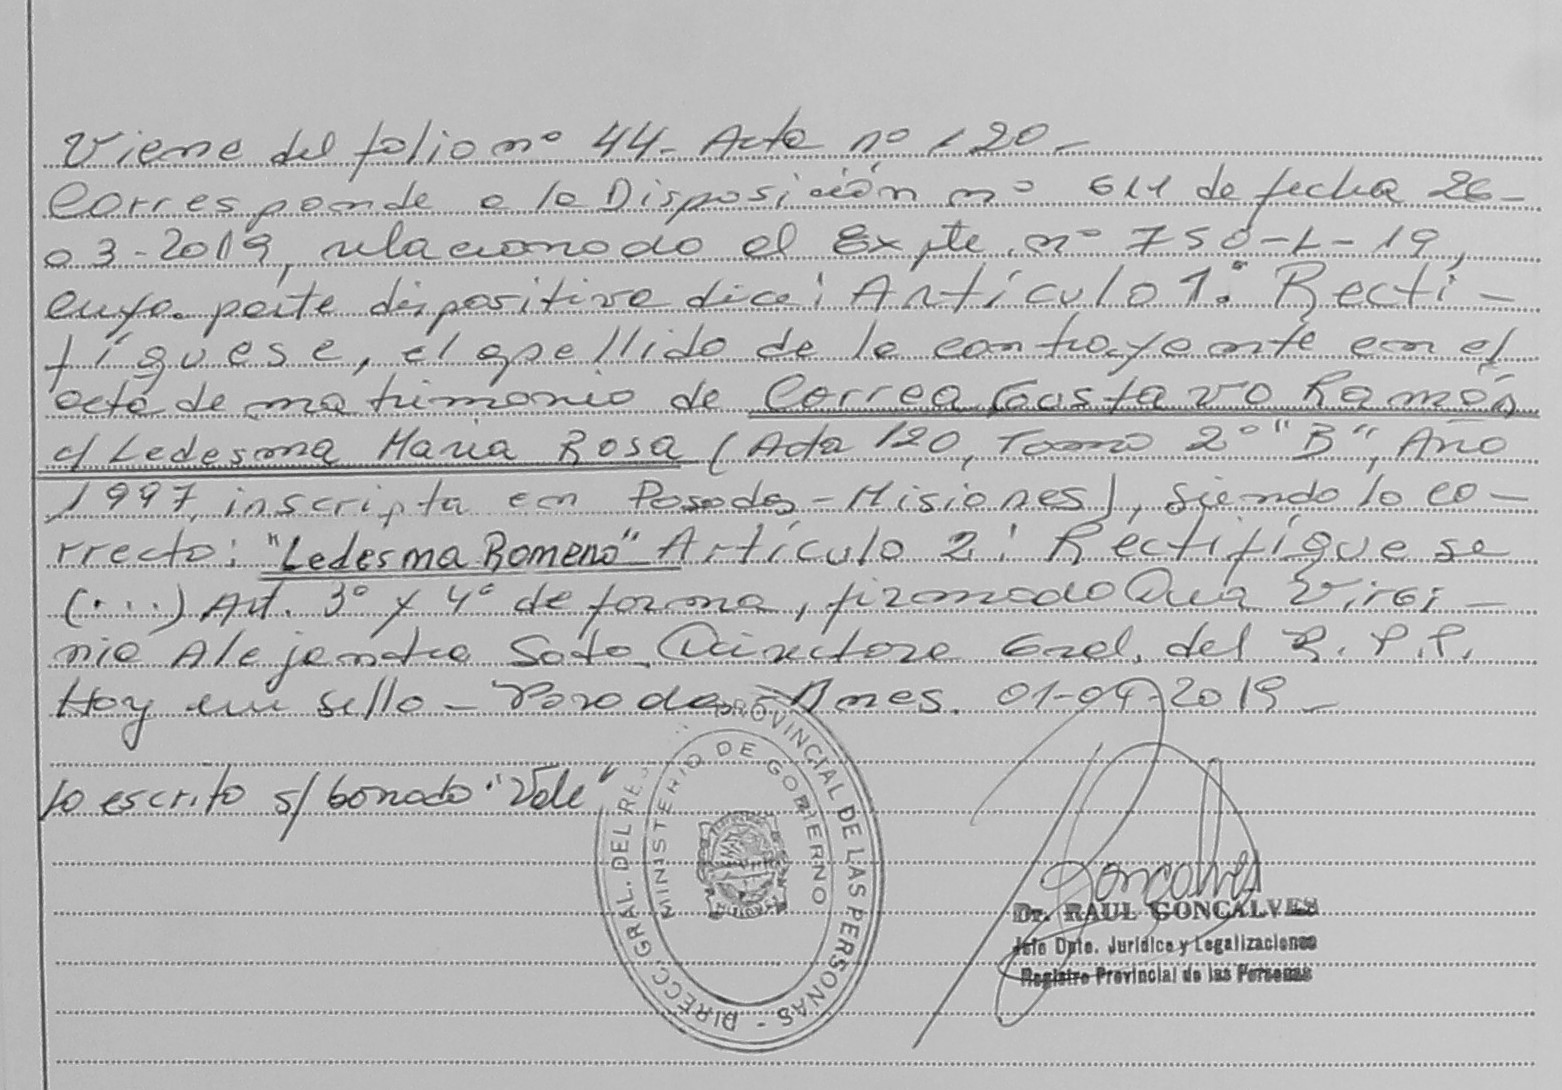 Viene del folio nº 44 - Acta nº 120 -
Corresponde a la Disposición nº 611 de fecha 26-
03-2019, relacionado el Expte. nº 750-L-19,
cuya parte dispositiva dice: Artículo 1º: Recti-
fíquese, el apellido de la contrayente en el
acta de matrimonio de Correa Gustavo Ramón
c/ Ledesma Maria Rosa (Acta 120, Tomo 2º "B", Año
1997, inscripta en Posadas - Misiones), siendo lo co-
rrecto: "Ledesma Romero" Artículo 2: Rectifíquese
(...) Art. 3º y 4º de forma, firmado Dra Virgi-
nia Alejandra Soto Directora Gral. del R.P.P.
Hoy en sello - Posadas, Mnes. 01-04-2019 -
lo escrito s/ borrado "Vale"
DIRECC. GRAL. DEL REG. PROVINCIAL DE LAS PERSONAS -
MINISTERIO DE GOBIERNO
MISIONES
Goncalves
Dr. RAUL GONCALVES
Jefe Dpto. Jurídico y Legalizaciones
Registro Provincial de las Personas